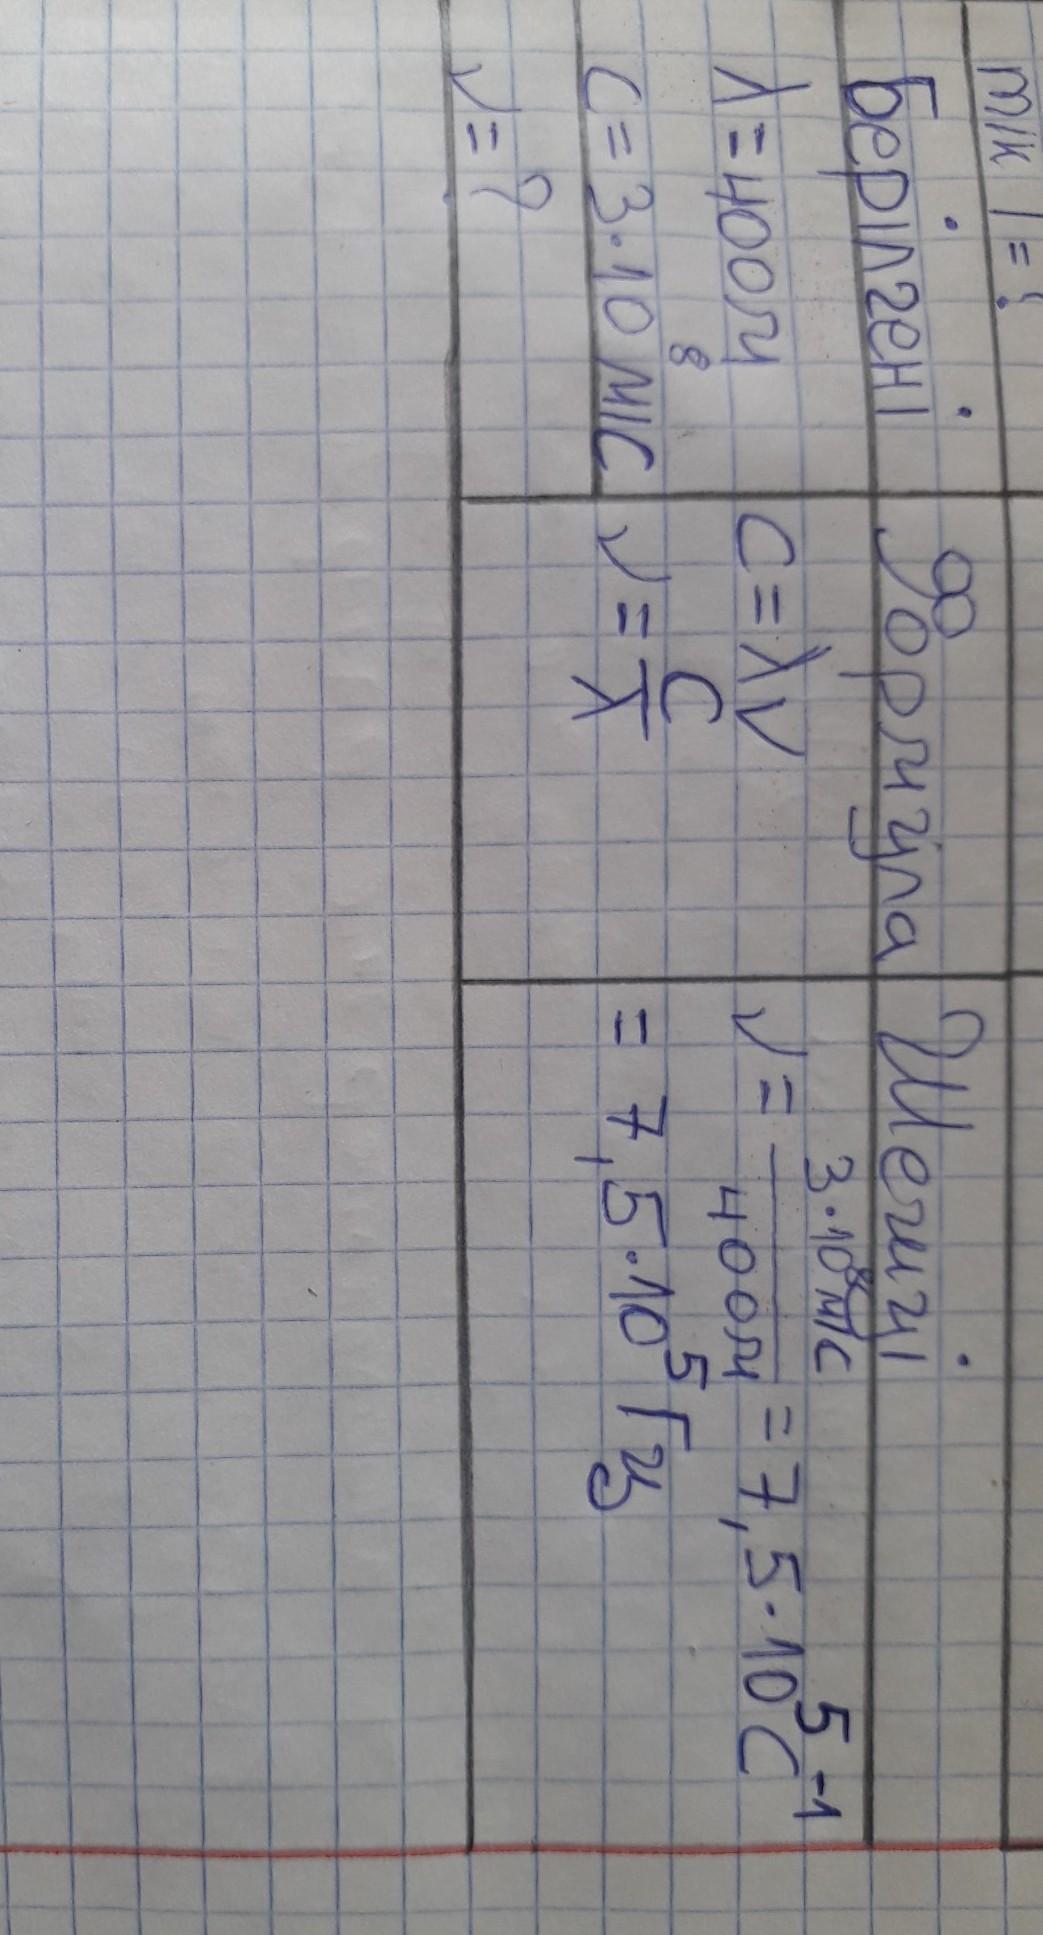 Берілгені
λ = 400м
C = 3·10⁸ м/с
ν = ?
Формула
C = λν
ν = C/λ
Шешуі
ν = 3·10⁸ м/с / 400м = 7,5·10⁵ С⁻¹
= 7,5·10⁵ Гц